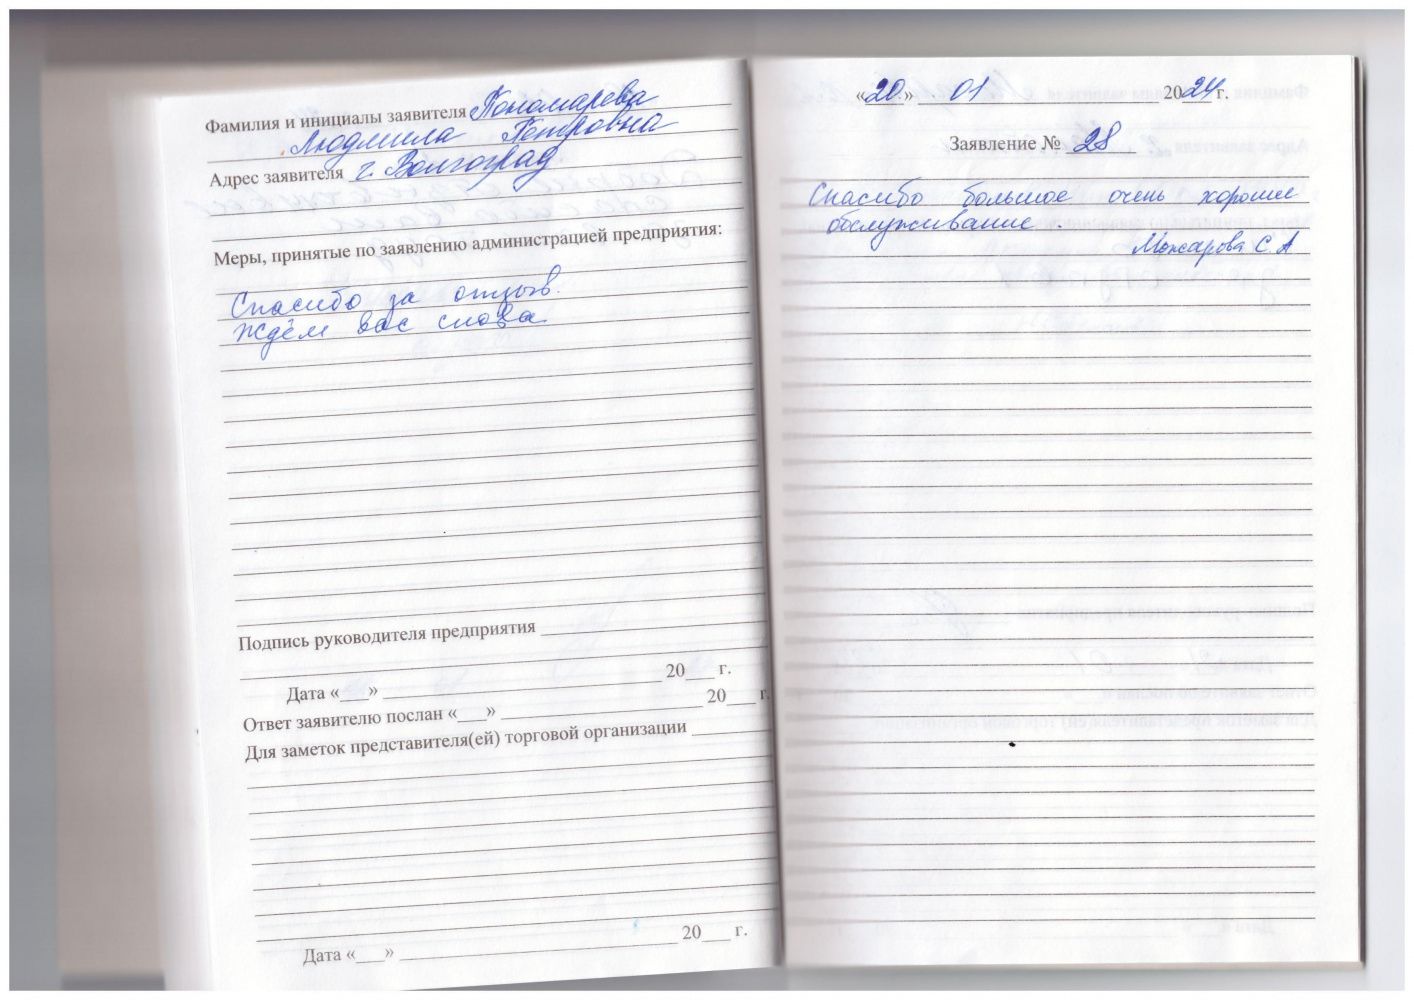 Фамилия и инициалы заявителя Пономарева
Людмила Петровна
Адрес заявителя г. Волгоград
Меры, принятые по заявлению администрацией предприятия:
Спасибо за отзыв.
Ждём вас снова
Подпись руководителя предприятия
Дата «___» ___ 20___ г.
Ответ заявителю послан «___» ___ 20___ г.
Для заметок представителя(ей) торговой организации
Дата «___» ___ 20___ г.
«20» 01 2024 г.
Заявление № 28
Спасибо большое очень хорошее
обслуживание.
Можарова С.А